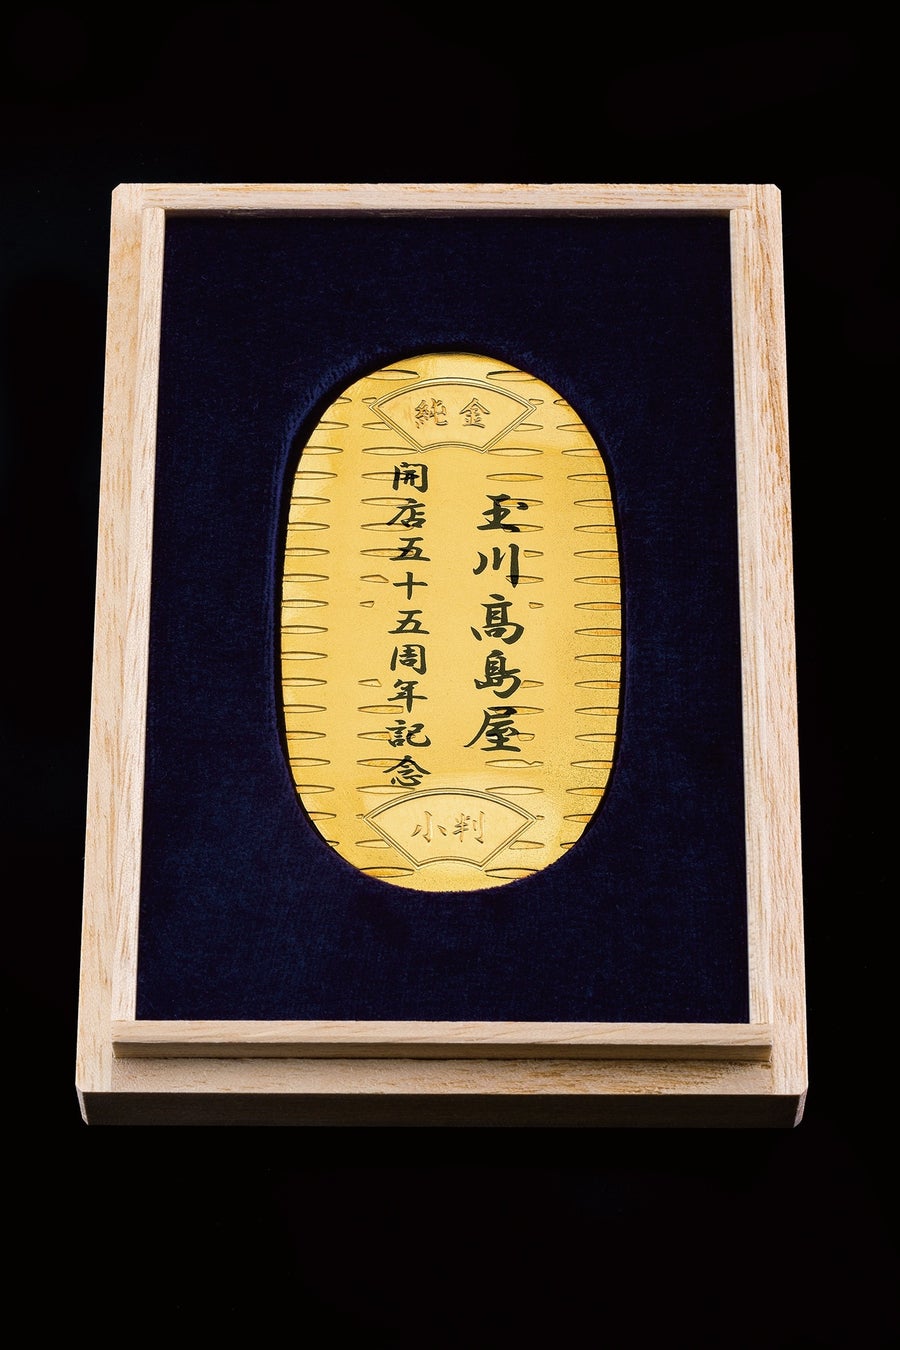 純金
玉川髙島屋
開店五十五周年記念
小判